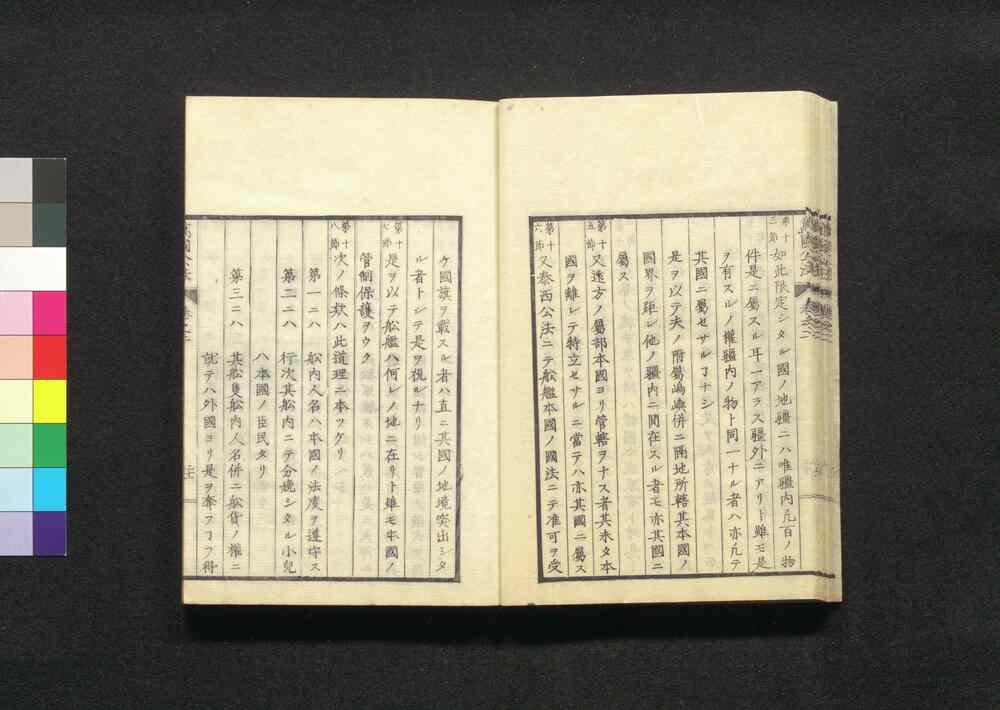 第十三節
如此限定シタル國ノ地疆ニハ唯疆内凢百ノ物
件是ニ屬スル耳ーアラス疆外ニアリト雖モ是
ヲ有スルノ權疆内ノ物ト同一ナル者ハ亦凢テ
其國ニ屬セサルヿナシ
是ヲ以テ夫ノ附屬嶋嶼併ニ隔地所轄其本國ノ
國界ヲ距レ他ノ疆内ニ間在スル者モ亦其國ニ
屬ス
第十五節
又遠方ノ屬部本國ヨリ管轄ヲナス者其未タ本
國ヲ離レテ特立セサルニ當テハ亦其國ニ屬ス
第十六節
又泰西公法ニテ舩艦本國ノ國法ニテ准可ヲ受
ケ國旗ヲ戴スル者ハ直ニ其國ノ地境突出シタ
ル者トシテ是ヲ視ルナリ
第十七節
是ヲ以テ舩艦ハ何レノ地ニ在リト雖モ本國ノ
管制保護ヲウク
第十八節
次ノ條欸ハ此道理ニ本ツケリ
第一ニハ 舩内人名ハ本國ノ法度ヲ遵守ス
第二ニハ 行次其舩内ニテ分娩シタル小兒
ハ本國ノ臣民タリ
第三ニハ 其舩隻舩内人名併ニ舩貨ノ權ニ
就テハ外國ヨリ是ヲ奪フヿヲ得